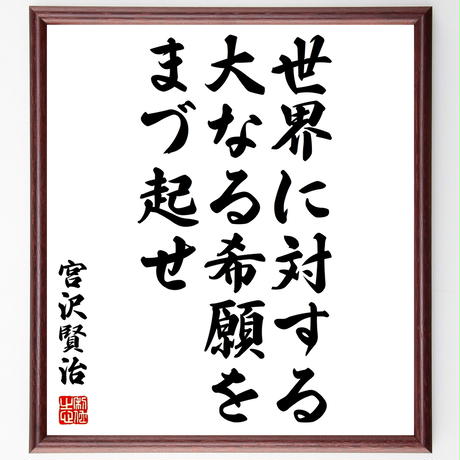 世界に対する
大なる希願を
まづ起せ
宮沢賢治